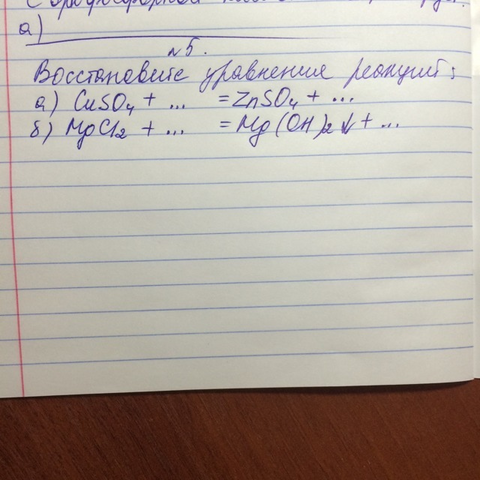 а)
№5.
Восстановите уравнения реакций:
а) CuSO4 + ... = ZnSO4 + ...
б) MgCl2 + ... = Mg(OH)2↓ + ...